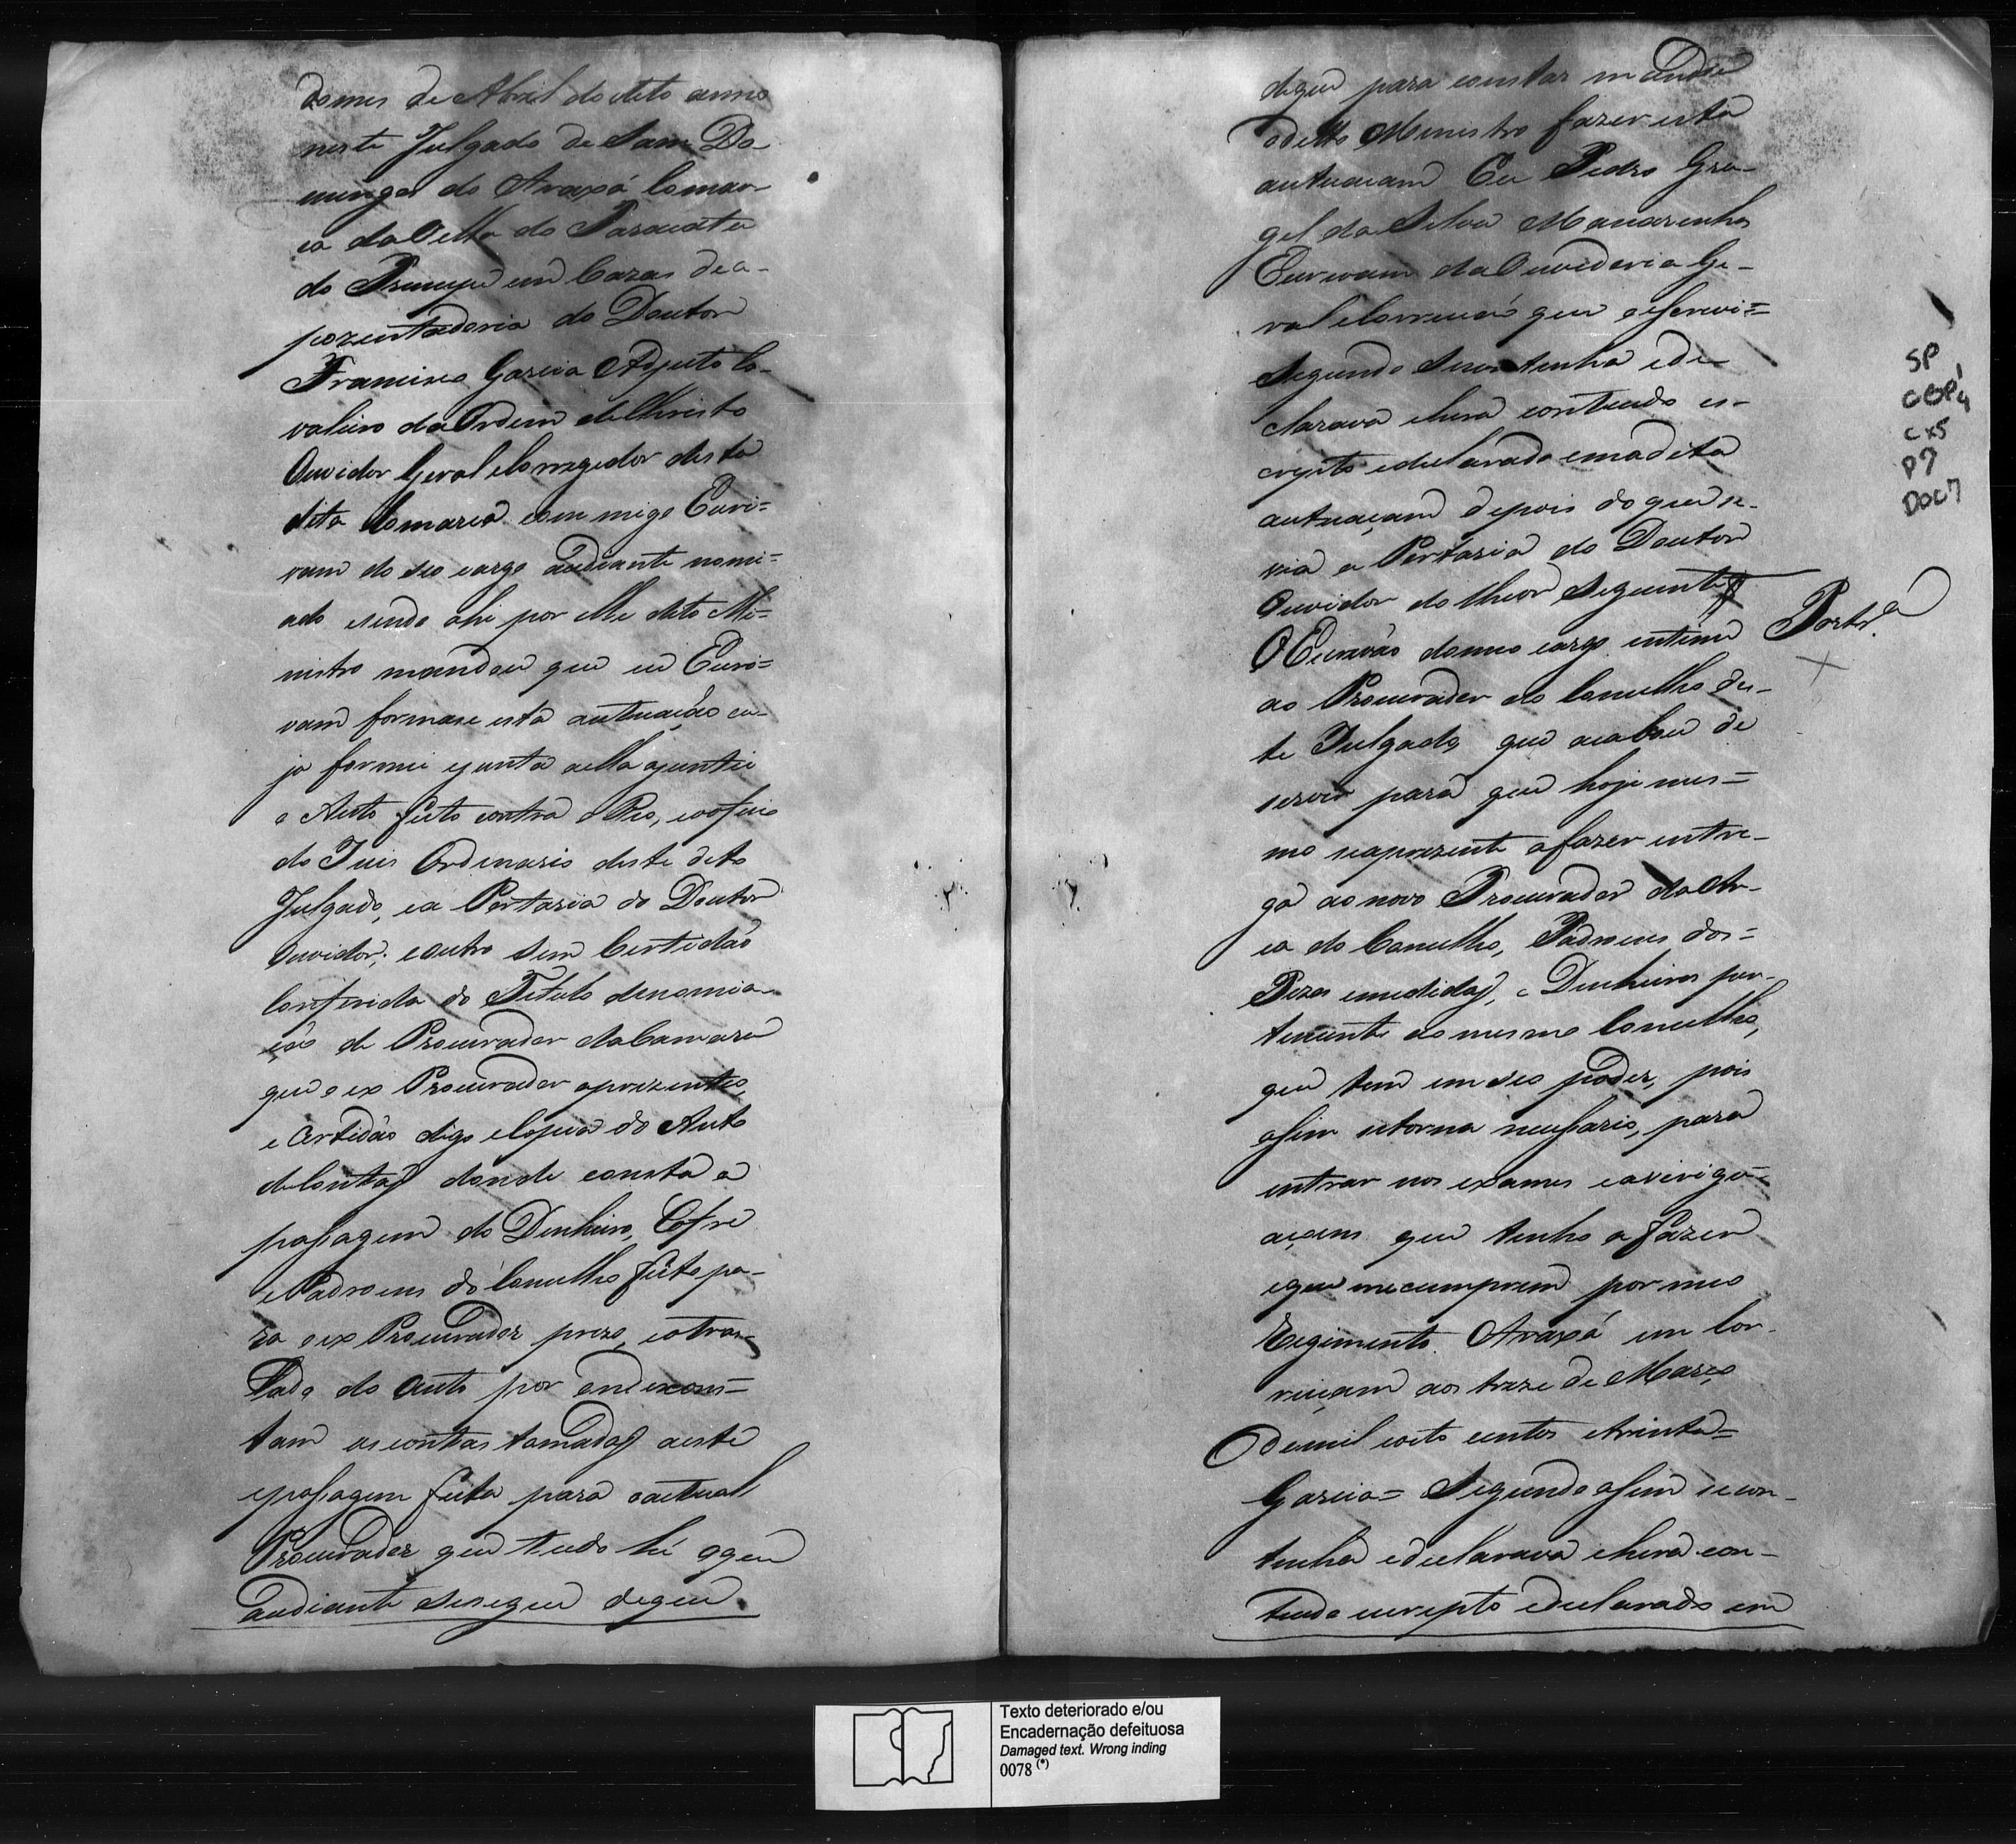 do mes de Abril do dito anno
neste Julgado de Sam Do-
mingos do Araxá Comar-
ca da Villa do Paracatu
do Principe em Cazas de a-
pozentadoria do Doutor
Francisco Garcia Adjuto Ca-
valeiro da Ordem de Christo
Ouvidor Geral e Corregedor desta
dita Comarca commigo Escri=
vam do seo cargo audiante nomi=
ado e sendo ahi por elle dito Mi=
nistro mandou que eu Escri=
vam formase esta autuação cu-
ja formei e junta a ella ajuntei
o Auto feito contra o Reo, e o oficio
do Juis Ordinario deste dito
Julgado, e a Portaria do Doutor
Ouvidor; e outro sim Certidão
Conferida do Titulo de nomia-
ção de Procurador da Camara
que o ex Procurador aprezentou,
e Certidão digo e Copia do Auto
de Contas donde consta a
passagem do Dinheiro, Cofre
e Padroens do Concelho feito pa-
ra o ex Procurador prezo, e o tras-
lado do Auto por onde cons=
tam as contas tomadas a este
e passagem feita para o actual
Procurador que tudo hé o que
audiante se segue de que
de que para constar mandou
o ditto Ministro fazer esta
autuacam Eu Pedro Gra-
gel da Silva Manarinhos
Escrivam da Ouvidoria Ge-
ral e Correição que o escrevi=
Segundo se continha e de-
clarava e hera contiudo es-
cripto e declarado em a dita
autuaçam depois do que se
via a Portaria do Doutor
Ouvidor do theor Seguinte
O Escrivão do meo cargo intime
ao Procurador do Concelho des-
te Julgado, que acabou de
servir para que hoje mes=
mo se aprezente a fazer entre-
ga ao novo Procurador da Ar-
ca do Concelho, Padroens dos=
Pezos e medidas, e Dinheiros per-
tencente ao mesmo Concelho,
que tem em seo poder, pois
assim se torna necessario, para
entrar nos exames e averigu-
açoens que tenho a fazer
e que me cumprem por meo
Regimento. Araxá em Cor-
reiçam aos treze de Março
de mil e oito centos e trinta=
Garcia= Segundo assim se con-
tinha e declarava e hera con-
tiudo escripto e declarado em
Portr.ª
SP
CGP1
4
Cx5
P7
DOC7
Texto deteriorado e/ou
Encadernação defeituosa
Damaged text. Wrong inding
0078 (*)